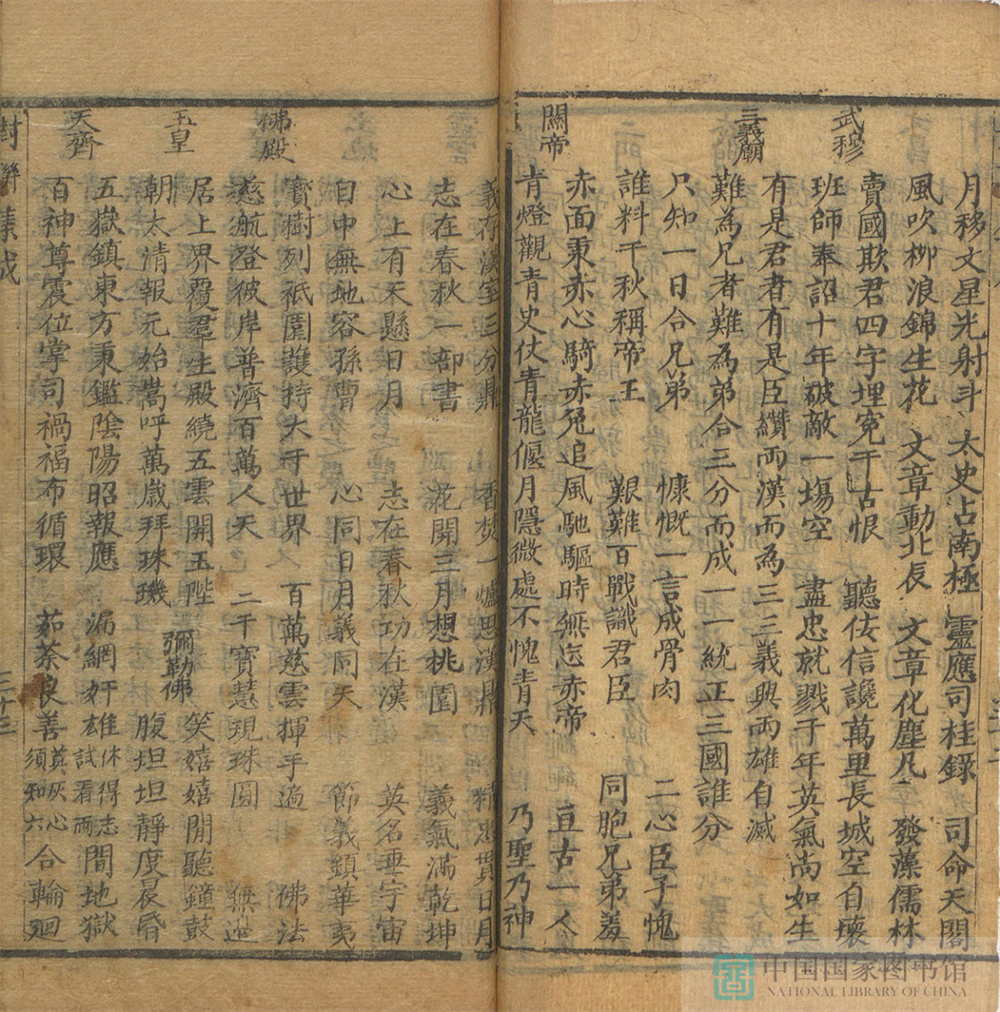 月移文星光射斗 太史占南極 靈應司桂錄 司命天閣
風吹柳浪錦生花 文章動北長 文章化塵凡 發藻儒林
武穆
賣國欺君四字埋冤千古恨 聽佞信讒萬里長城空自壞
班師奉詔十年破敵一塲空 盡忠就戮千年英氣尚如生
三義廟
有是君者有是臣纘兩漢而為三三義興兩雄自滅
難為兄者難為弟合三分而成一一統正三國誰分
只知一日合兄弟 慷慨一言成骨肉 二心臣子愧
誰料千秋稱帝王 艱難百戰識君臣 同胞兄弟羞
關帝
赤面秉赤心騎赤兔追風馳驅時無忘赤帝 亘古一人
青燈觀青史仗青龍偃月隱微處不愧青天 乃聖乃神
義存漢室三分鼎 香焚一爐思漢鼎 精忠貫日月
志在春秋一部書 花開三月想桃園 義氣滿乾坤
心上有天懸日月 志在春秋功在漢 英名垂宇宙
目中無地容孫曹 心同日月義同天 節義鎮華夷
佛殿
寳樹列祇園護持大千世界 百萬慈雲揮手遍 佛法
慈航登彼岸普濟百萬人天 二千寳慧現珠圓 無邊
玉皇
居上界覆羣生殿繞五雲開玉陛 彌勒佛 笑嬉嬉閒聽鐘鼓
朝太清報元始嵩呼萬歲拜珠璣 腹坦坦靜度晨昏
天齊
五嶽鎮東方秉鑑陰陽昭報應 漏網奸雄休得志試看兩間地獄
百神尊震位掌司禍福布循環 茹荼良善莫灰心須知六合輪廻
對聯集成
三十三
中国国家图书馆
NATIONAL LIBRARY OF CHINA